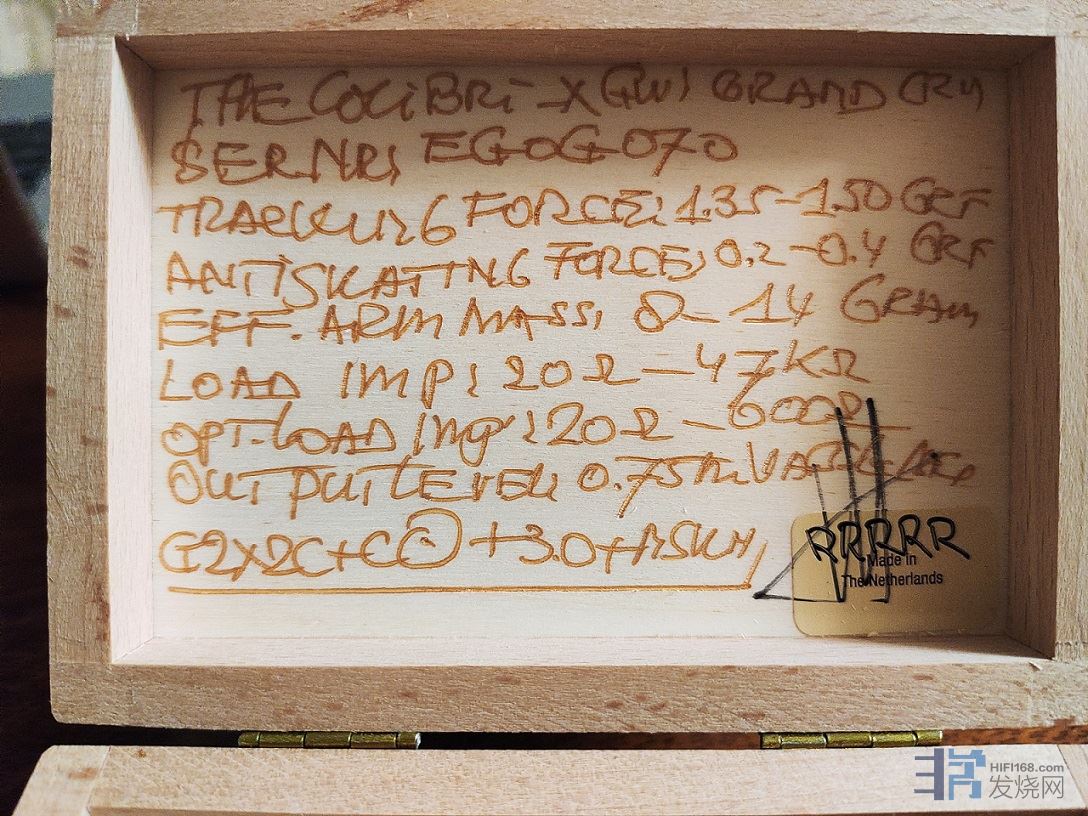 THE COLIBRI-X(GW) GRAND CRU
SERNR: EGOG070
TRACKING FORCE: 1.35-1.50 GRF
ANTISKATING FORCE: 0.2-0.4 GRF
EFF. ARM MASS: 8-14 GRAM
LOAD IMP: 20Ω-47KΩ
OPT. LOAD IMP: 20Ω-600Ω
OUTPUT LEVEL: 0.75mV
+3.0+
RRRRR
Made in
The Netherlands
HIFI168.com
发烧网